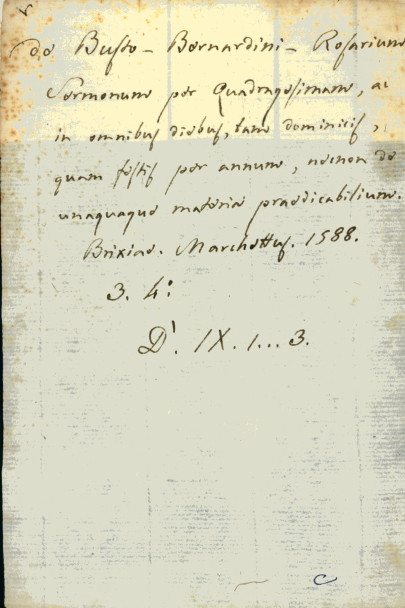 de Busto - Bernardini - Rosarium
Sermonum per Quadragesimam, ac
in omnibus diebus, tam dominicis,
quam festis per annum, necnon de
unaquaque materia praedicabilium.
Brixiae. Marchettus. 1588.
3. 4:
D'. IX. 1...3.